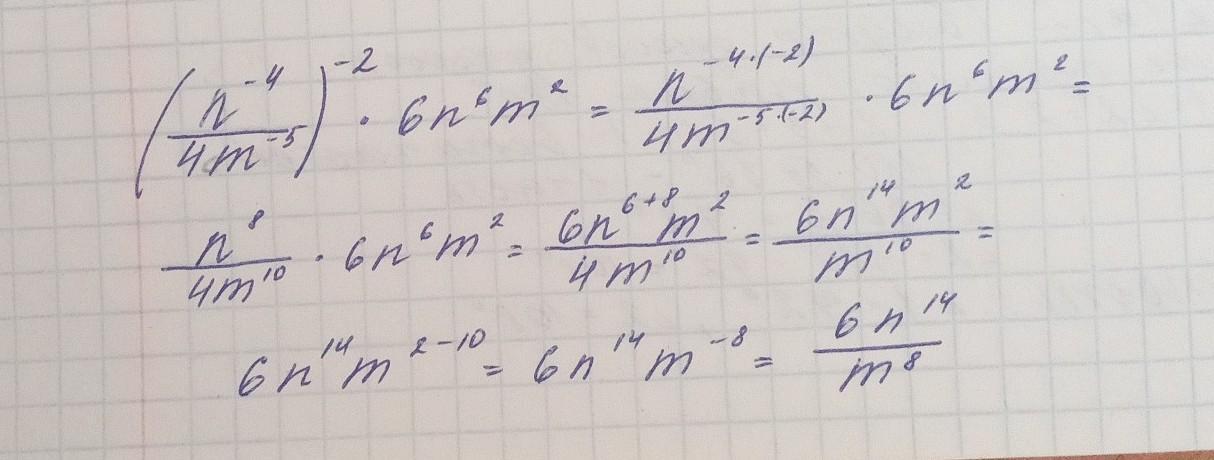 (n^{-4}/4m^{-5})^{-2} · 6n^6m^2 = n^{-4·(-2)}/4m^{-5·(-2)} · 6n^6m^2 =
n^8/4m^{10} · 6n^6m^2 = 6n^{6+8}m^2/4m^{10} = 6n^{14}m^2/m^{10} =
6n^{14}m^{2-10} = 6n^{14}m^{-8} = 6n^{14}/m^8